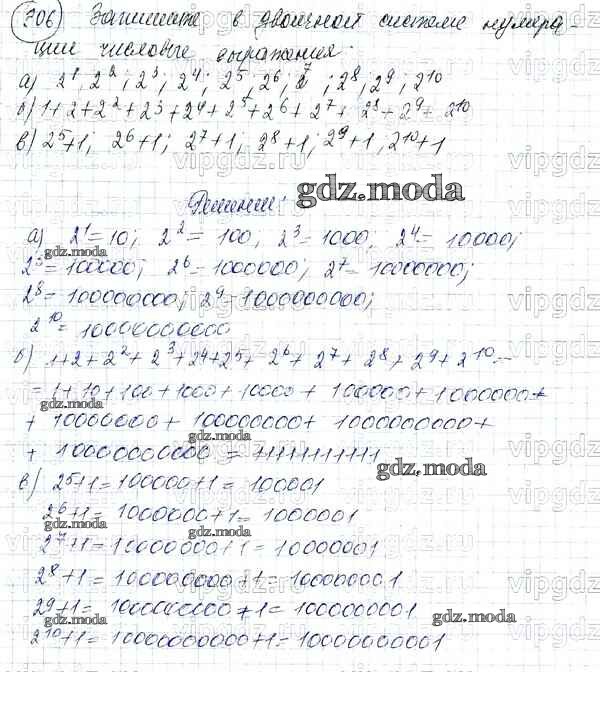 706 Запишите в двоичной системе нумера-
ции числовые выражения.
а) 2¹, 2²; 2³; 2⁴; 2⁵; 2⁶; 2⁷; 2⁸, 2⁹, 2¹⁰
б) 1+2+2²+2³+2⁴+2⁵+2⁶+2⁷+2⁸+2⁹+2¹⁰
в) 2⁵+1; 2⁶+1; 2⁷+1; 2⁸+1; 2⁹+1; 2¹⁰+1
Решение:
gdz.moda
а) 2¹=10; 2²=100; 2³=1000; 2⁴=10000;
gdz.moda
2⁵=100000; 2⁶=1000000; 2⁷=10000000;
2⁸=100000000; 2⁹=1000000000;
2¹⁰=10000000000
б) 1+2+2²+2³+2⁴+2⁵+2⁶+2⁷+2⁸+2⁹+2¹⁰=
=1+10+100+1000+10000+100000+1000000+
gdz.moda
+10000000+100000000+1000000000+
gdz.moda
+10000000000=11111111111
gdz.moda
в) 2⁵+1=100000+1=100001
2⁶+1=1000000+1=1000001
gdz.moda
2⁷+1=10000000+1=10000001
2⁸+1=100000000+1=100000001
2⁹+1=1000000000+1=1000000001
gdz.moda
2¹⁰+1=10000000000+1=10000000001
gdz.moda